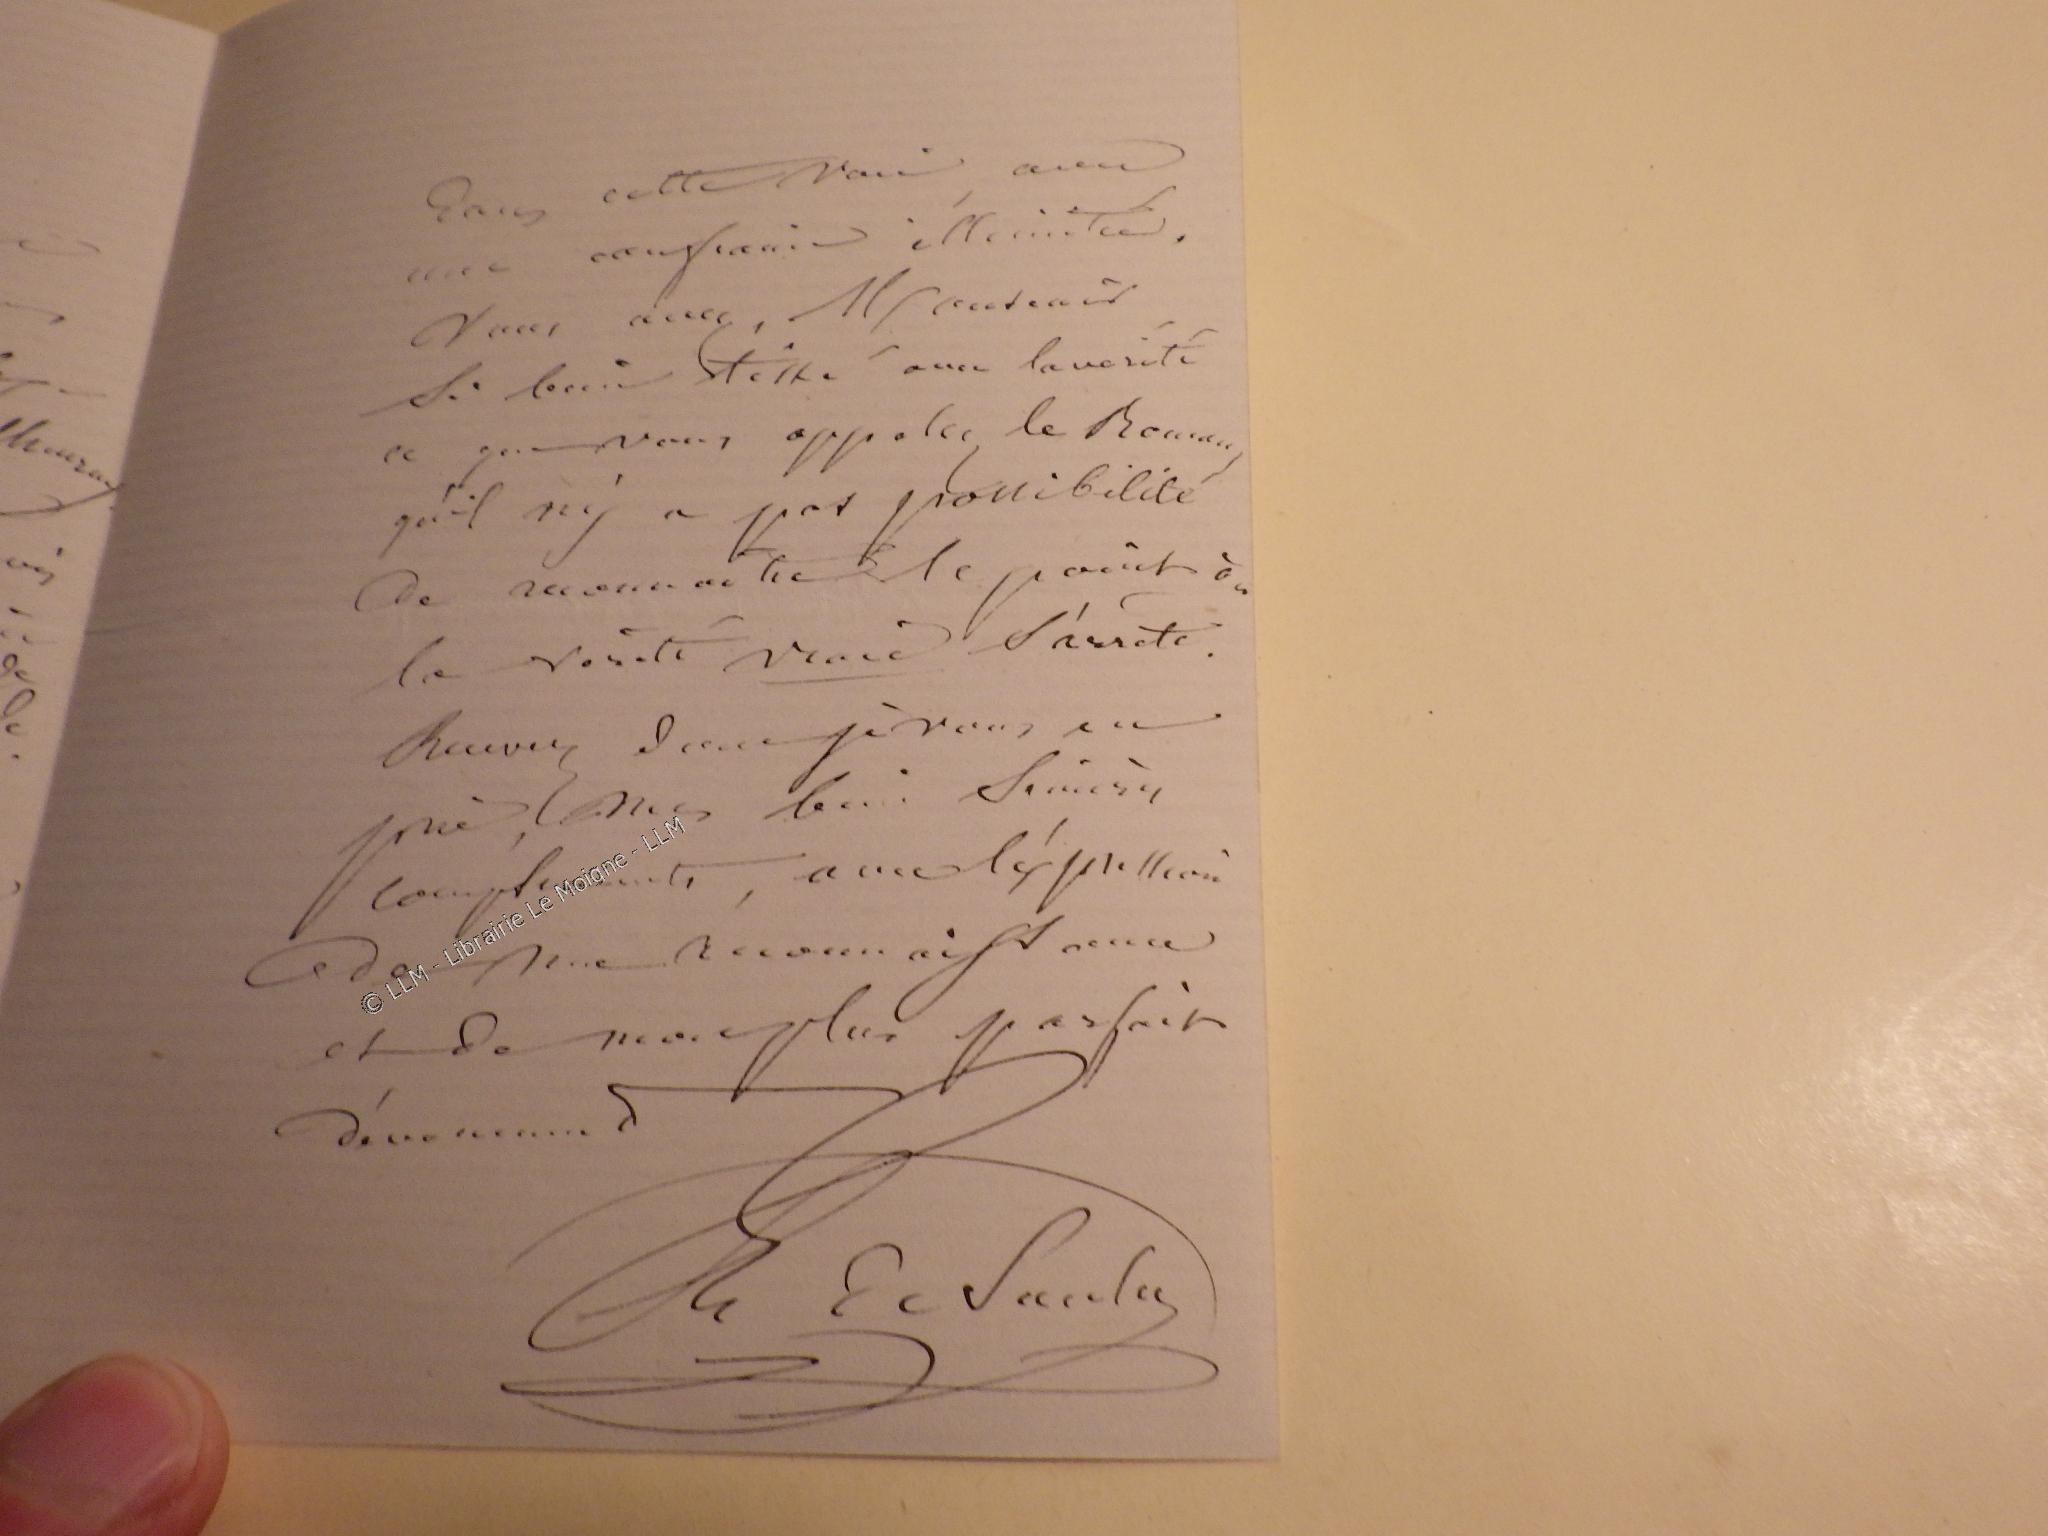 Dans cette voie, avec
une confiance illimitée.
Vous avez, Monsieur
si bien tissé avec la verité
ce que vous appelez le Roman,
qu'il n'y a pas possibilité
de reconnaitre le point où
la vérité vraie s'arrete.
Recevez donc je vous en
prie, mes bien sincères
compliments, avec l'expression
de ma reconnaissance
et de mon plus parfait
dévouement
de Saulcy
© LLM - Librairie Le Moigne - LLM